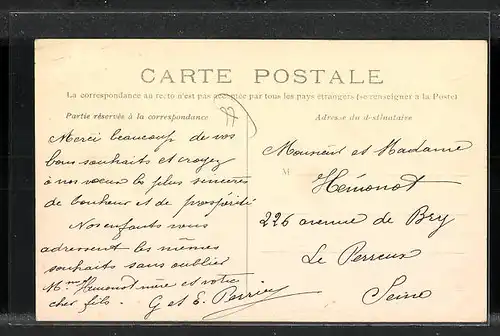 CARTE POSTALE
La correspondance au recto n'est pas acceptée par tous les pays étrangers (se renseigner à la Poste)
Partie réservée à la correspondance
Adresse du destinataire
Merci beaucoup de vos
bons souhaits et croyez
à nos vœux les plus sincères
de bonheur et de prospérité
Nos enfants vous
adressent les mêmes
souhaits sans oublier
Mme Hémonot mère et votre
cher fils. G et E. Perrin
Monsieur et Madame
M Hémonot
226 avenue de Bry
Le Perreux
Seine